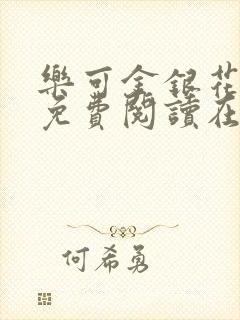 樂可金銀花
免費閱讀在
何希勇